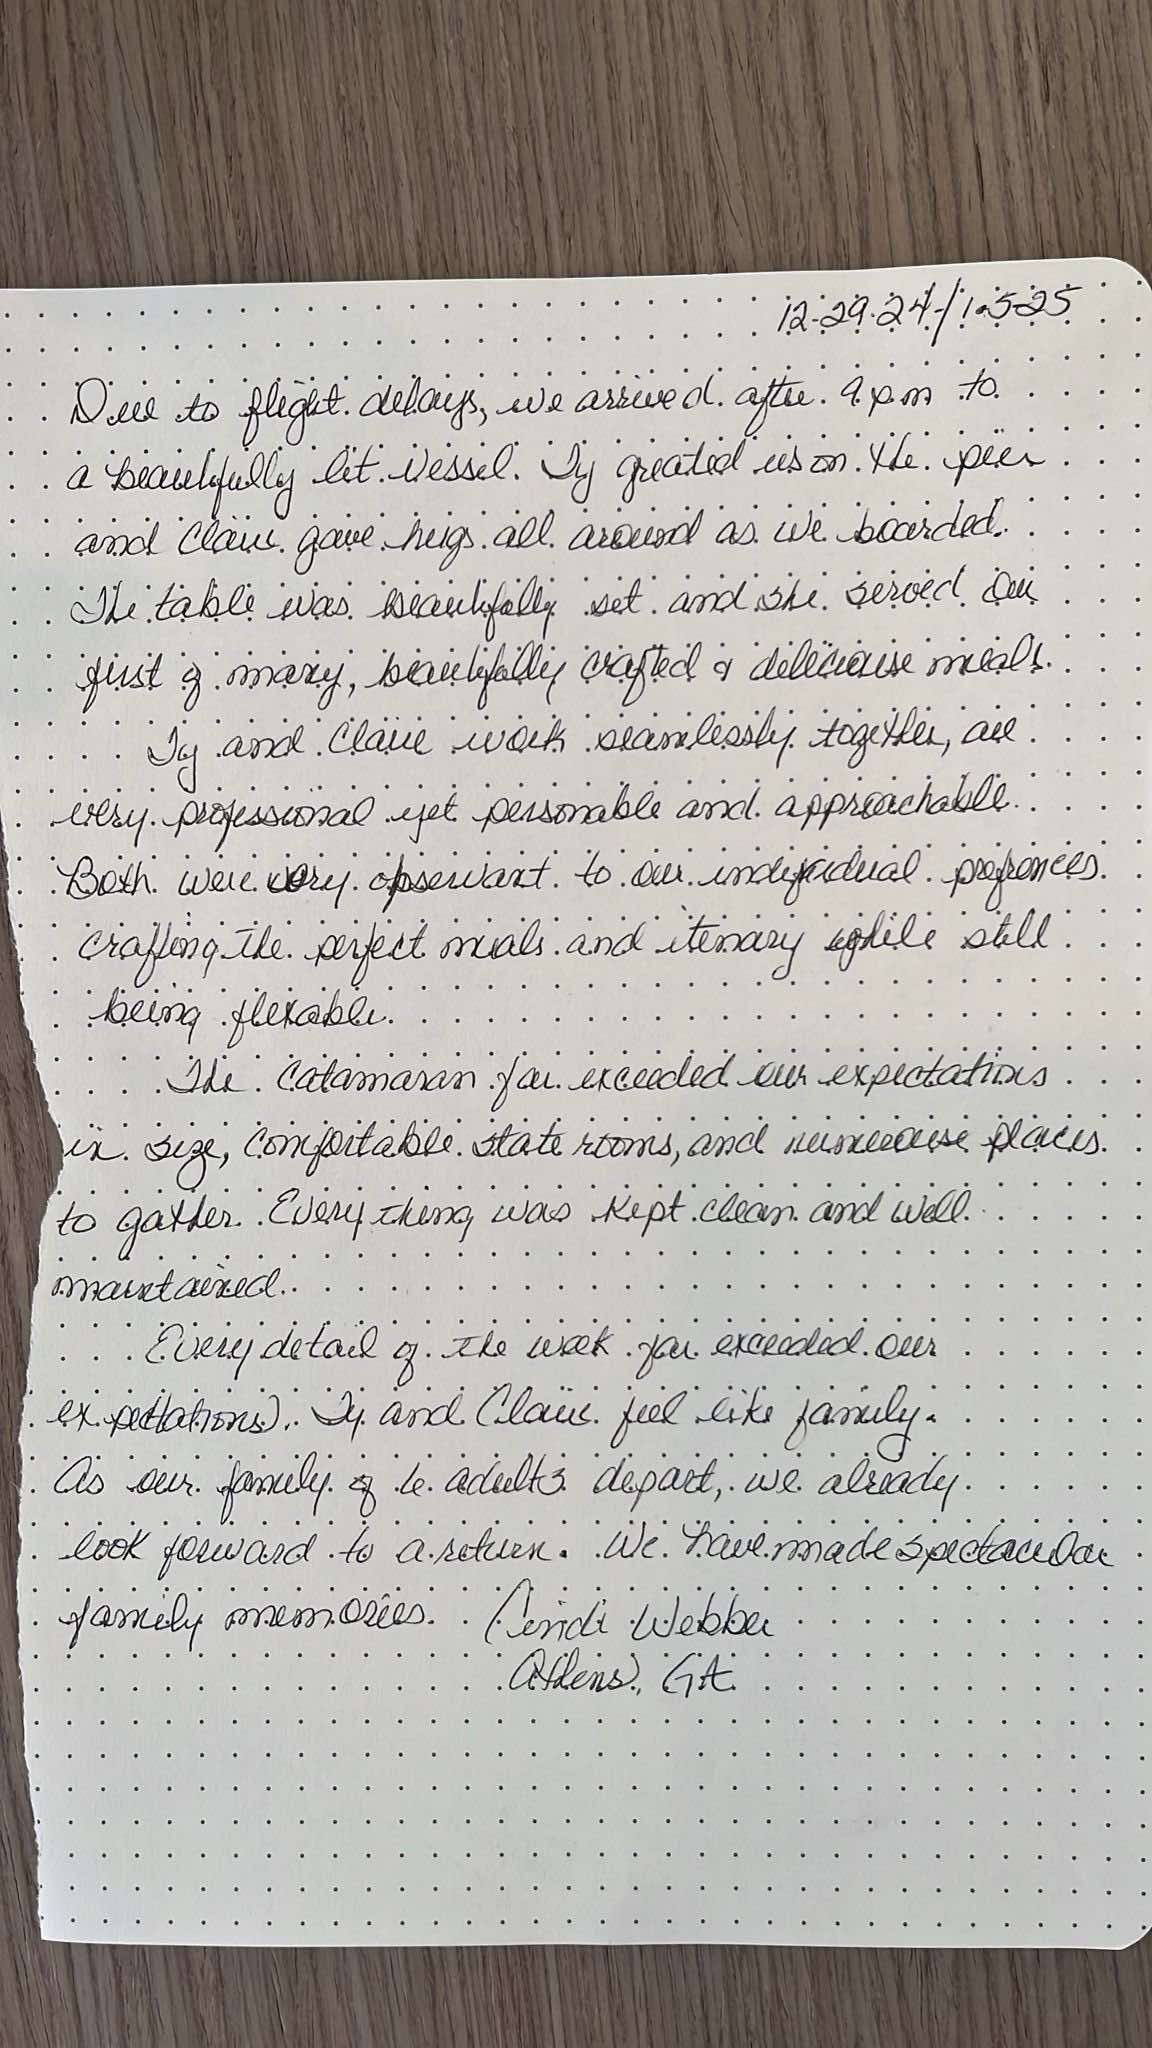 12-29-24/1-5-25
Due to flight delays, we arrived after 9 pm to
a beautifully lit vessel. Ty greated us on the pier
and Claire gave hugs all around as we boarded.
The table was beautifully set and she served our
first of many, beautifully crafted & deliciouse meals.
Ty and Claire work seamlessly together, are
very professional yet personable and approachable.
Both were very observant to our individual prefrences.
crafting the perfect meals and itenary while still
being flexable.
The Catamaran far exceeded our expectations
in size, comfortable state rooms, and numerouse places
to gather. Everything was kept clean and well
maintained.
Every detail of the week far exceeded our
expectations. Ty and Claire feel like family.
As our family of 6 adults depart, we already
look forward to a return. We have made spectacular
family memories. Cindi Webber
Athens, GA